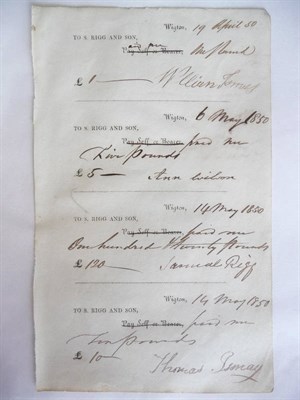 Wigton, 19 April 50
TO S. RIGG AND SON,
Pay Self or Bearer
£ 1
William
Wigton, 6 May 1850
TO S. RIGG AND SON,
Pay Self or Bearer, paid me
Five Pounds
£ 5 Ann Wilson
Wigton, 14 May 1850
TO S. RIGG AND SON,
Pay Self or Bearer, paid me
One hundred & twenty Pounds
£ 120 Samuel Rigg
Wigton, 14 May 1850
TO S. RIGG AND SON,
Pay Self or Bearer, paid me
Ten Pounds
£ 10
Thomas